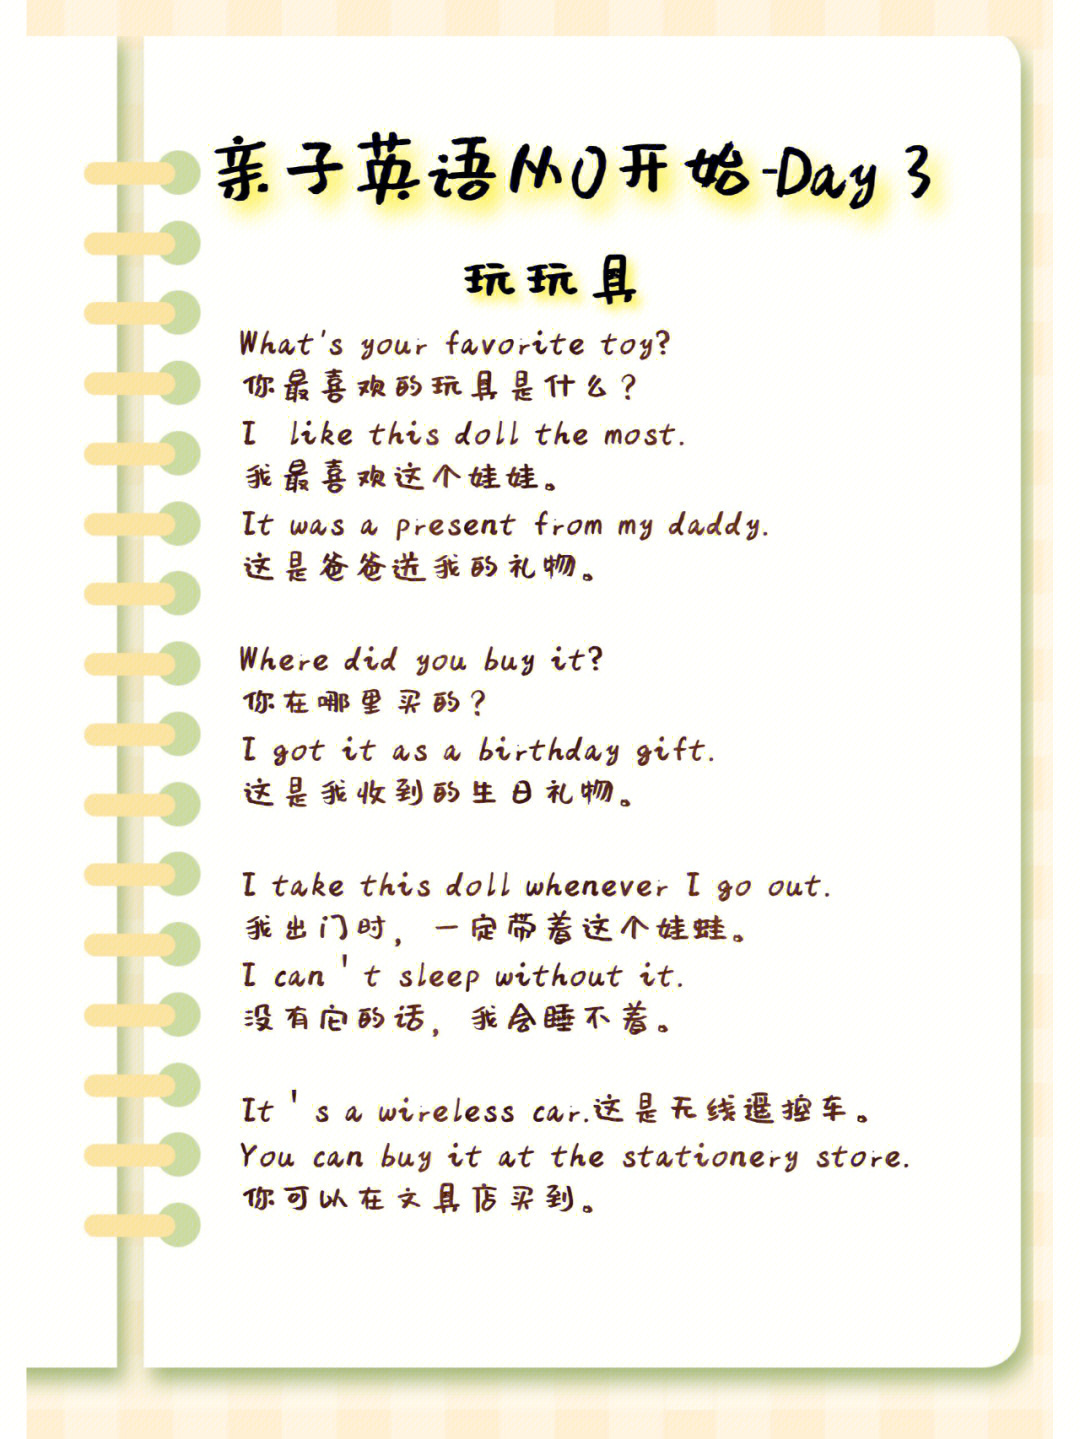 亲子英语从0开始-Day 3
玩玩具
What's your favorite toy?
你最喜欢的玩具是什么?
I like this doll the most.
我最喜欢这个娃娃。
It was a present from my daddy.
这是爸爸送我的礼物。
Where did you buy it?
你在哪里买的?
I got it as a birthday gift.
这是我收到的生日礼物。
I take this doll whenever I go out.
我出门时, 一定带着这个娃蛙。
I can't sleep without it.
没有它的话, 我会睡不着。
It's a wireless car.这是无线遥控车。
You can buy it at the stationery store.
你可以在文具店买到。